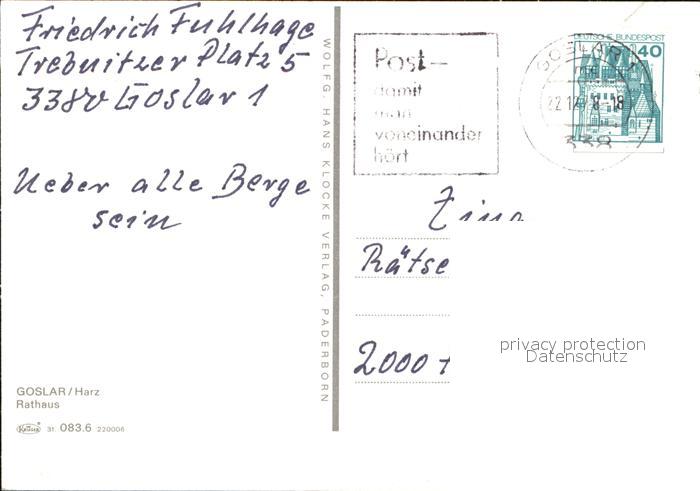 Friedrich Fuhlhage
Trebnitzer Platz 5
3380 Goslar 1
Ueber alle Berge
sein
GOSLAR / Harz
Rathaus
Krüger 31 083.6 220006
WOLFG. HANS KLOCKE VERLAG, PADERBORN
Post-
damit
man
voneinander
hört
GOSLAR 1
22.12.78-18
338
DEUTSCHE BUNDESPOST
40
Rätse
2000
privacy protection
Datenschutz